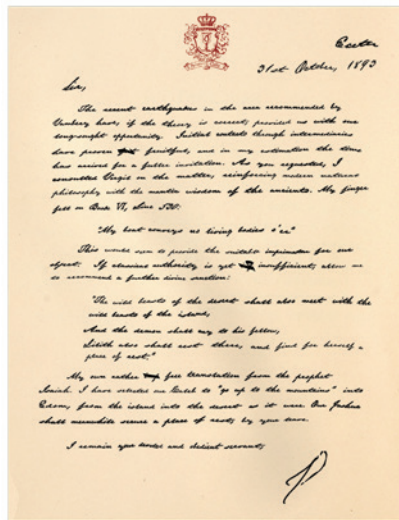 Exeter
31st October, 1893
Sir,
The recent earthquakes in the area recommended by
Vambery have, if the theory is correct, provided us with one
long-sought opportunity. Initial contacts through intermediaries
have proven fruitful, and in my estimation the time
has arrived for a fuller invitation. As you requested, I
consulted Virgil on the matter, reinforcing modern natural
philosophy with the mantic wisdom of the ancients. My finger
fell on Book VI, Line
"My boat conveys no living bodies
This would seem to provide the suitable imprimatur for our
object. If classical authority is yet insufficient, allow me
to recommend a further divine sanction:
"The wild beasts of the desert shall also meet with the
wild beasts of the island,
And the demon shall cry to his fellow,
Lilith also shall rest there, and find for herself a
place of rest."
My own rather free translation from the prophet
Isaiah. I have selected our to "go up to the mountains" into
Edom, from the island into the desert as it were. Our Joshua
shall meanwhile secure a place of rest, by your leave.
I remain your and obedient servant,